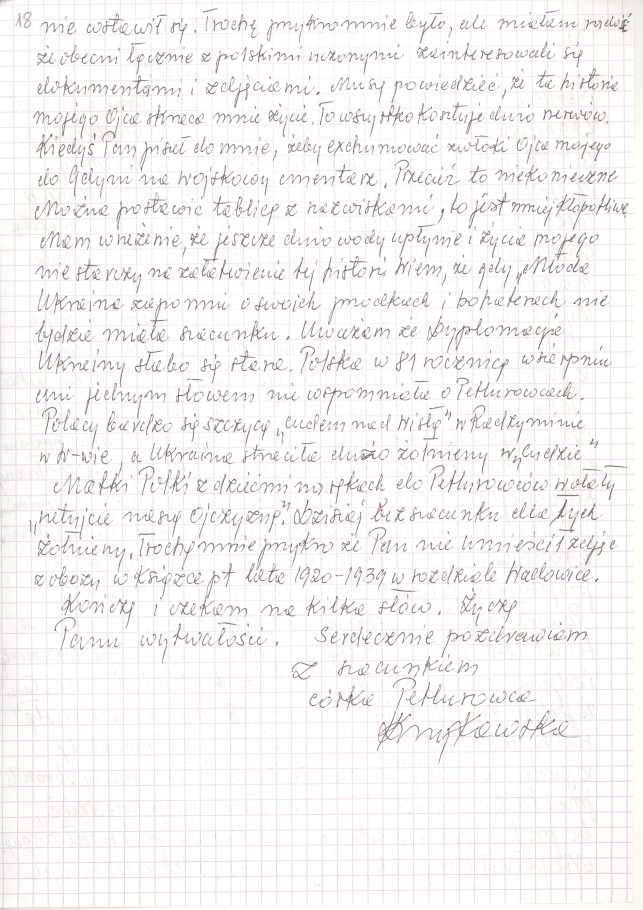 18 nie wstawił się. Trochę przykro mnie było, ale miałam radość
że obecni łącznie z polskimi uczonymi zainteresowali się
dokumentami i zdjęciami. Muszę powiedzieć, że ta historia
mojego Ojca skraca mnie życie. To wszystko kosztuje dużo nerwów.
Kiedyś Pan pisał do mnie, żeby exchumować zwłoki Ojca mojego
do Gdyni na wojskowy cmentarz. Przecież to niekonieczne
Można postawić tablicę z nazwiskami, to jest mniej kłopotliwe
Mam wrażenie, że jeszcze dużo wody upłynie i życia mojego
nie starczy na załatwienie tej historii. Wiem, że gdy „Młoda
Ukraina zapomni o swoich przodkach i bohaterach nie
będzie miała szacunku. Uważam że Dyplomacja
Ukrainy słabo się stara. Polska w 81 rocznicę w sierpniu
ani jednym słowem nie wspomniała o Petlurowcach.
Polacy bardzo się szczycą „cudem nad Wisłą” w Radzyminie
w W-wie, a Ukraina straciła dużo żołnierzy w „Cudzie”
Matki Polki z dziećmi na rękach do Petlurowców wołały
„ratujcie naszą Ojczyznę”. Dzisiaj bez szacunku dla Tych
żołnierzy. Trochę mnie przykro że Pan nie umieścił zdjęć
z obozu w Książce pt lata 1920-1939 w rozdziale Wadowice.
Kończę i czekam na kilka słów. Życzę
Panu wytwałości. Serdecznie pozdrawiam
Z szacunkiem
córka Petlurowca